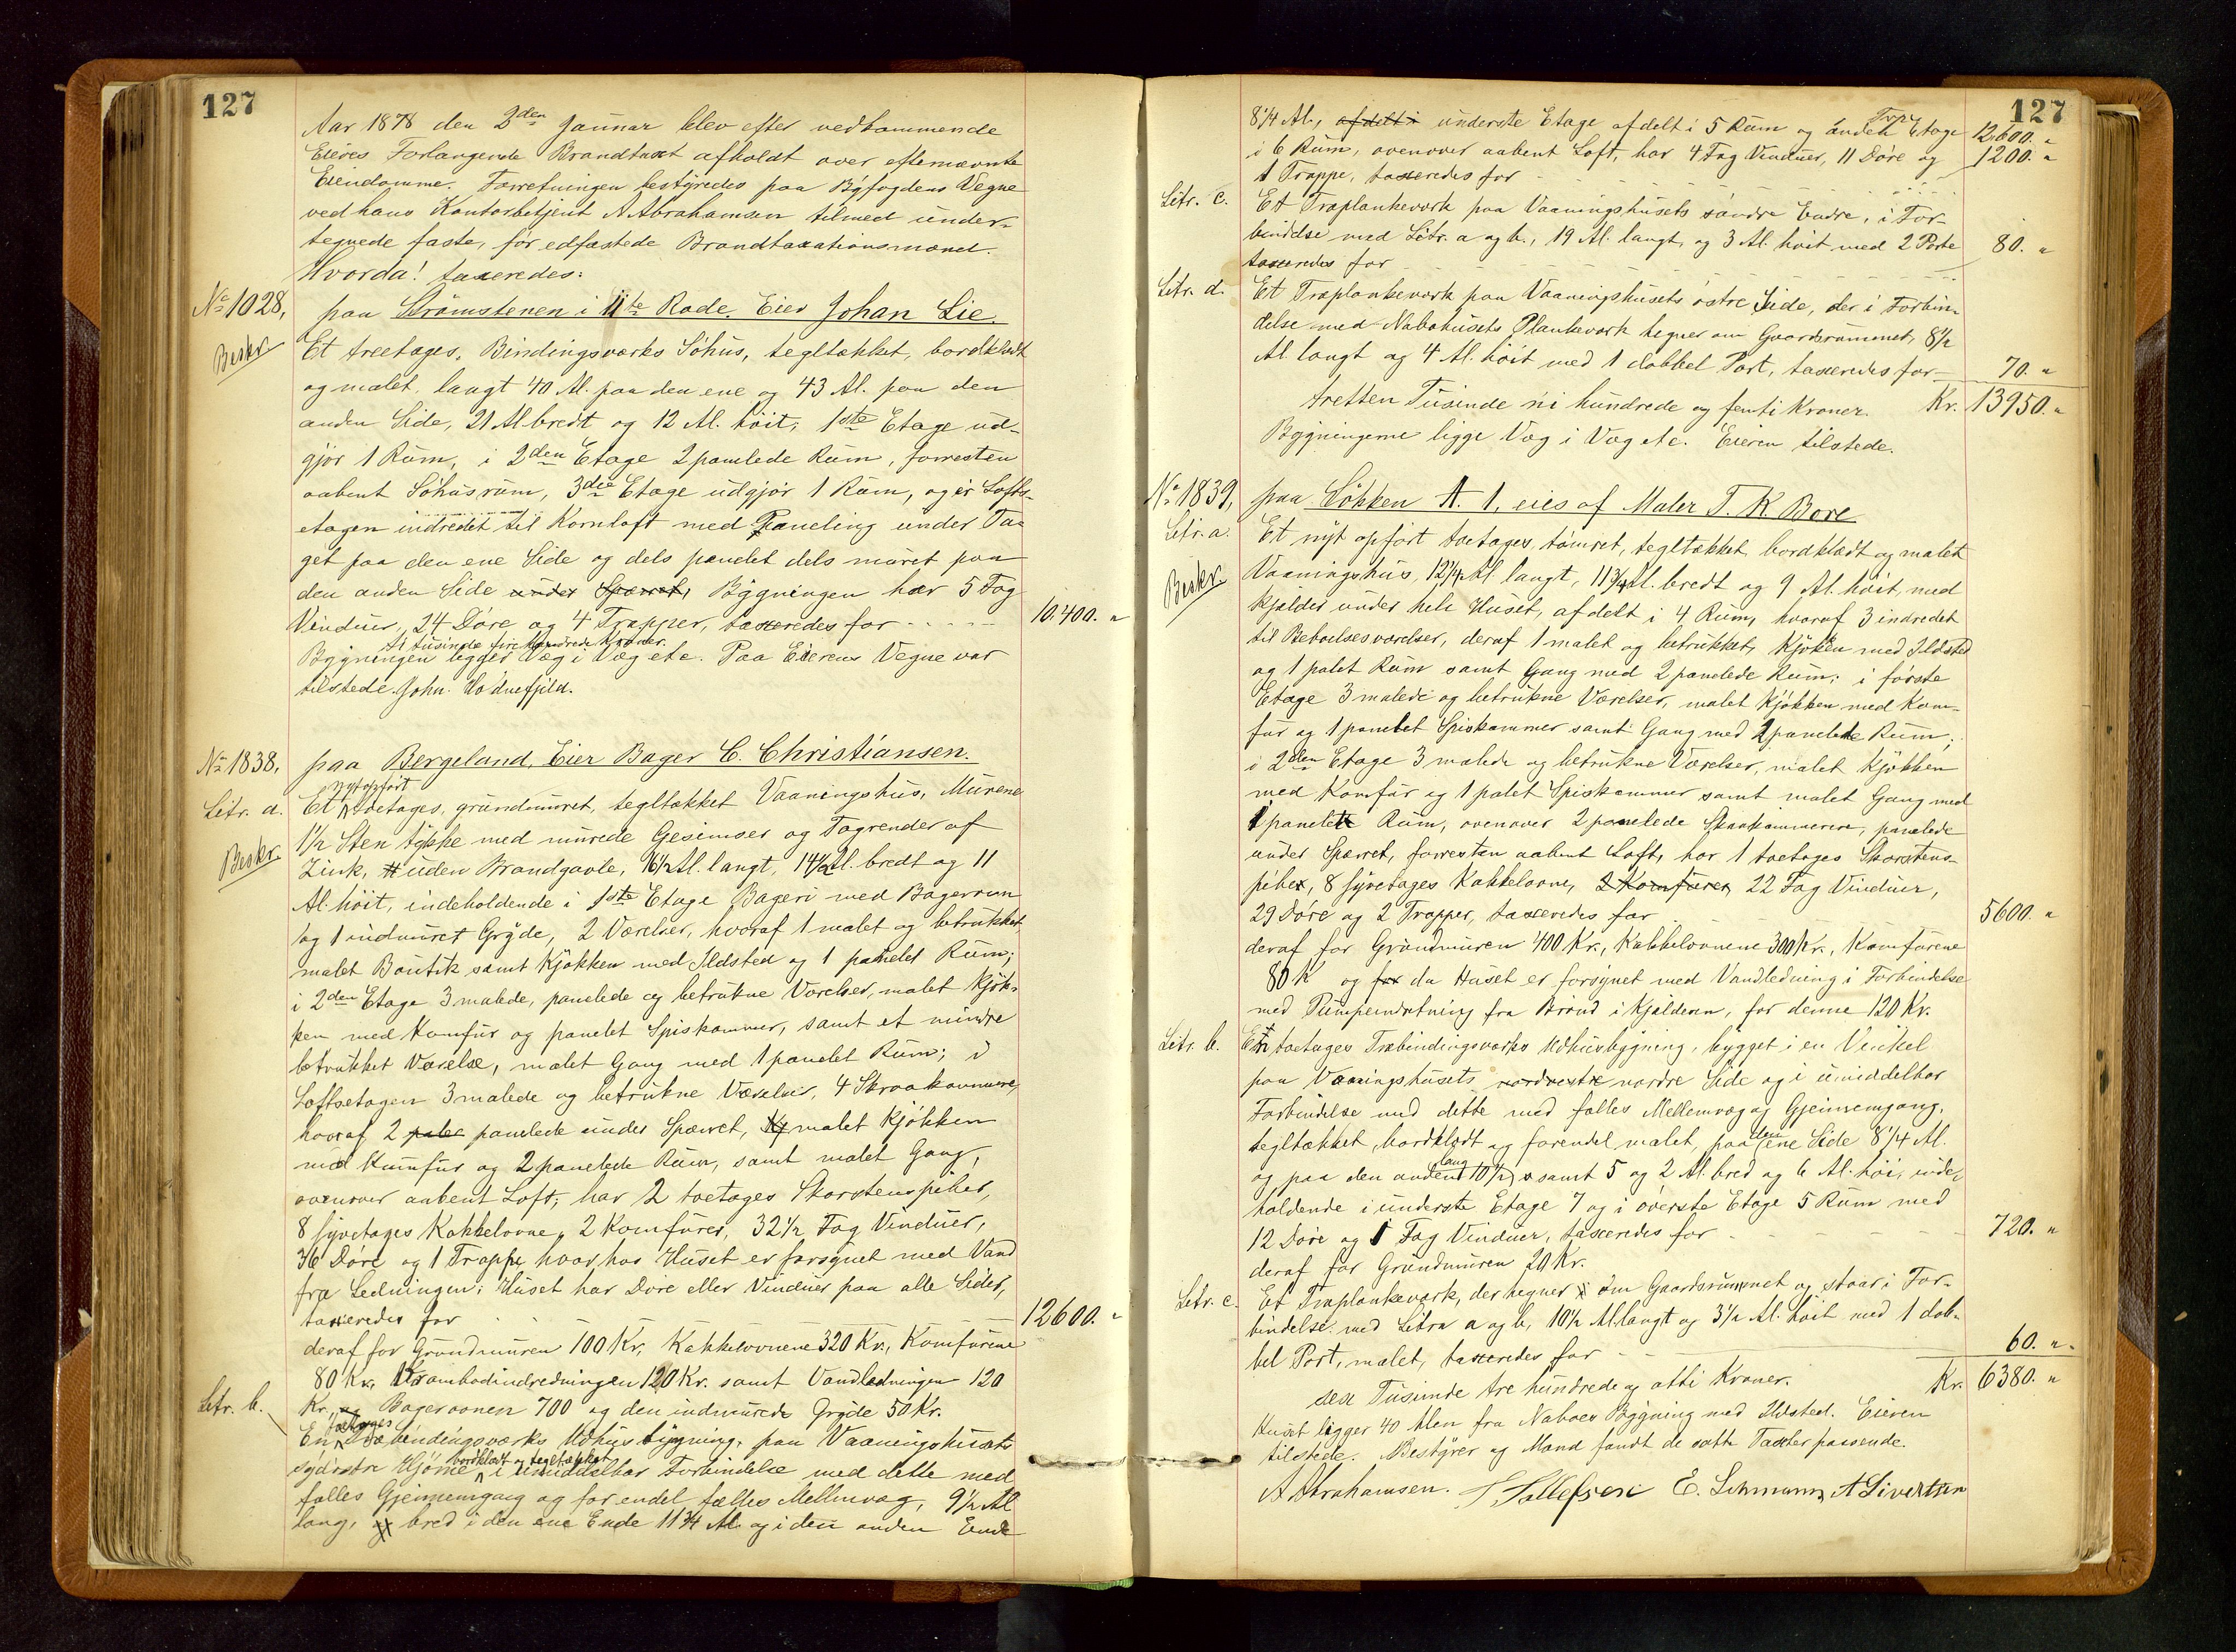 127
Aar 1878 den 2den Januar blev efter vedkommende
Eieres Forlangende Brandtaxt afholdt over eftenævnte
Eiendomme. Forretningen bestyredes paa Byfogdens Vegne
ved hans Kontorbetjent A Abrahamsen tilmed under-
tegnede faste, før edfæstede Brandtaxationsmænd.
Hvorda! taxeredes:
No 1028, paa Strømstenen i 11te Rode. Eier Johan Lie.
Beskr. Et treetages, Bindingsværks Søhus, tegltækket, bordklædt
og malet, langt 40 Al. paa den ene og 43 Al. paa den
anden Side, 21 Al bredt og 12 Al. høit, 1ste Etage ud-
gjør 1 Rum, i 2den Etage 2 panelede Rum, forresten
aabent Søhusrum, 3die Etage udgjør 1 Rum, og er Lofts-
etagen indredet til Kornloft med Paneling under Ta-
get paa den ene Side og dels panelet dels muret paa
den anden Side under Sparret, Bygningen har 5 Fag
Vinduer, 24 Døre og 4 Trapper, taxeredes for - - - - 10,400. "
ti tusinde fire hundrede Kroner.
Bygningen ligger Væg i Væg etc. Paa Eierens Vegne var
tilstede John. Hodnefjeld.
No 1838, paa Bergeland, Eier Bager C. Christiansen.
nytopført
Litr. a. Et toetages, grundmuret, tegltækket Vaaningshus, Murene
Beskr. 1 1/2 Sten tykke med murede Gesimser og Tagrender af
Zink, uden Brandgavle, 16 1/2 Al. langt, 14 1/2 Al. bredt og 11
Al. høit, indeholdende i 1ste Etage Bageri med Bagerovn
og 1 indmuret Gryde, 2 Værelser, hvoraf 1 malet og betrukket,
malet Boutik samt Kjøkken med Ildsted og 1 panelet Rum;
i 2den Etage 3 malede, panelede og betrukne Værelser, malet Kjøk-
ken med Komfur og panelet Spiskammer, samt et mindre
betrukket Værelse, malet Gang med 1 panelet Rum; i
Loftsetagen 3 malede og betrukne Værelser, 4 Skraakammere,
hvoraf 2 panelede under Sparret, malet Kjøkken
med Komfur og 2 panelede Rum, samt malet Gang,
ovenover aabent Loft; har 2 toetages Skorstenspiber,
8 fyretages Kakkelovne, 2 Komfurer, 32 1/2 Fag Vinduer,
36 Døre og 1 Trappe hvorhos Huset er forsynet med Vand
fra Ledningen; Huset har Døre eller Vinduer paa alle Sider,
taxeredes for - - - 12600. "
deraf for Grundmuren 100 Kr, Kakkelovnene 320 Kr., Komfurene
80 Kr, Krambodindredningen 120 Kr. samt Vandledningen 120
Kr, og Bagerovnen 700 og den indmurede Gryde 50 Kr.
toetages
Litr. b. En Træbindingsværks Udhusbygning, paa Vaaningshusets
bordklædt og tegltækket
sydvestre Hjørne i umiddelbar Forbindelse med dette med
fælles Gjennemgang og for endel fælles Mellemvæg, 9 1/2 Al
lang, bred i den ene Ende 11 3/4 Al. og i den anden Ende
127
8 1/4 Al., afdelt i underste Etage afdelt i 5 Rum og anden Etage 12,600. "
i 6 Rum, ovenover aabent Loft, har 4 Fag Vinduer, 11 Døre og 1200. "
1 Trappe, taxeredes for - - -
Litr. c. Et Træplankeværk paa Vaaningshusets søndre Endre, i For-
bindelse med Litr. a og b., 19 Al. langt, og 3 Al. høit med 2 Porte 80. "
taxeredes for - - -
Litr. d. Et Træplankeværk paa Vaaningshusets østre Side, der i Forbin-
delse med Nabohusets Plankeværk hegner om Gaardsrummet, 8 1/2
Al. langt og 4 Al. høit med 1 dobbel Port, taxeredes for - 70. "
tretten Tusinde ni hundrede og femti Kroner. Kr. 13950. "
Bygningerne ligge Væg i Væg etc. Eieren tilstede.
No 1839, paa Løkken A. 1, eies af Maler T. K. Bore
Litr. a. Et nyt opført toetages, tømret, tegltækket, bordklædt og malet
Beskr. Vaaningshus, 12 1/4 Al langt, 11 3/4 Al. bredt og 9 Al. høit, med
Kjælder under hele Huset, afdelt i 4 Rum, hvoraf 3 indredet
til Beboelsesværelser, deraf 1 malet og betrukket, Kjøkken med Ildsted
og 1 palet Rum samt Gang med 2 panelede Rum; i første
Etage 3 malede og betrukne Værelser, malet Kjøkken med Kom-
fur og 1 panelet Spiskammer samt Gang med 2 panelede Rum;
i 2den Etage 3 malede og betrukne Værelser, malet Kjøkken
med Komfur og 1 palet Spiskammer samt malet Gang med
1 panelet Rum, ovenover 2 panelede Skraakammerere, panelede
under Sparret, forresten aabent Loft, har 1 toetages Skorstens-
pibe, 8 fyretages Kakkelovne, 2 Komfurer, 22 Fag Vinduer,
29 Døre og 2 Trapper, taxeredes for 5600. "
deraf for Grundmuren 400 Kr., Kakkelovnene 300 Kr., Komfurene
80 K og for da Huset er forsynet med Vandledning i Forbindelse
med Pumpeindretning fra Brønd i Kjælderen, for denne 120 Kr.
Litr. b. En toetages Træbindingsværks Udhusbygning, bygget i en Vinkel
paa Vaaningshusets nordvestre nordre Side og i umiddelbar
Forbindelse med dette med fælles Mellemvæg og Gjennemgang,
tegltækket, bordklædt og forendel malet, paa den ene Side 8 1/4 Al.
lang
og paa den anden 10 1/2 samt 5 og 2 Al. bred og 6 Al. høi, inde-
holdende i underste Etage 7 og i øverste Etage 5 Rum med
12 Døre og 1 Fag Vinduer, taxeredes for - - - 720. "
deraf for Grundmuren 20 Kr.
Litr. c. Et Træplankeværk, der hegner om Gaardsrummet og staar i For-
bindelse med Litra a og b, 10 1/2 Al langt og 3 1/2 Al. høit med 1 dob-
bel Port, malet, taxeredes for - - - 60. "
sex Tusinde tre hundrede og otti Kroner. Kr. 6380. "
Huset ligger 40 Alen fra Naboers Bygning med Ildsted. Eieren
tilstede. Bestyrer og Mænd fandt de satte Taxter passende.
A Abrahamsen. T Tollefsen E. Lehmann A Sivertsen